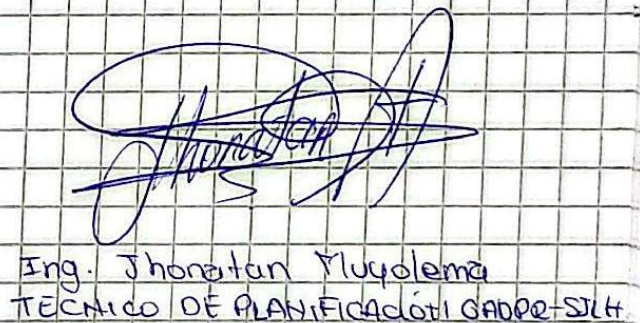 Jhonatan
Ing. Jhonatan Muyolema
TECNICO DE PLANIFICACIÓN GADPR-SJLH